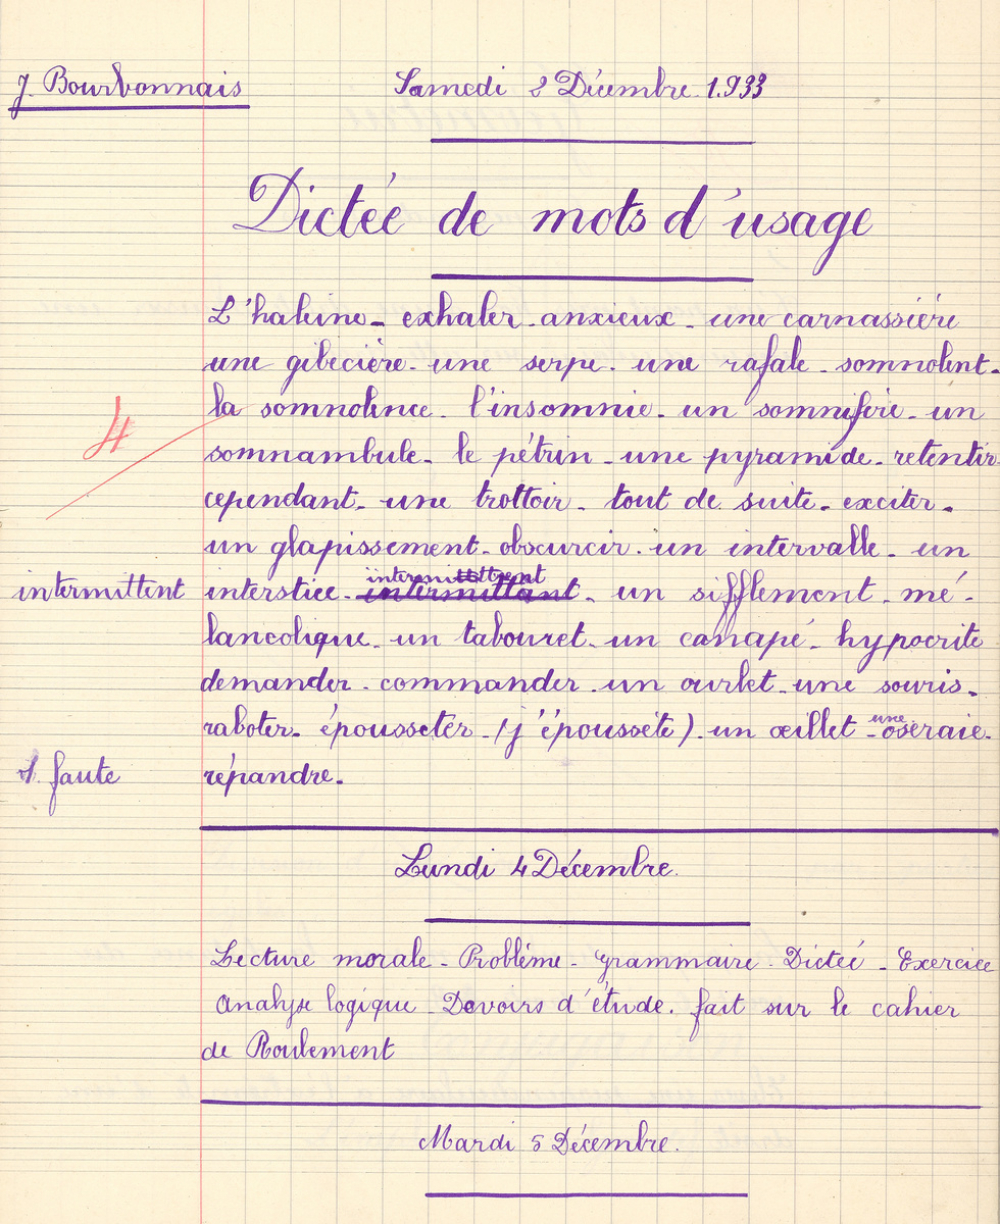 J. Bourbonnais
Samedi 2 Décembre 1.933
Dictée de mots d'usage
L'haleine - exhaler - anxieux - une carnassière
une gibecière - une serpe - une rafale - somnolent -
la somnolence - l'insomnie - un somnifère - un
4
somnambule - le pétrin - une pyramide - retentir
cependant - une trottoir - tout de suite - exciter -
un glapissement - obscurcir - un intervalle - un
intermittent
interstice - intermittant intermitttent - un sifflement - mé-
lancolique - un tabouret - un canapé - hypocrite
demander - commander - un ourlet - une souris -
raboter - épousseter - (j'époussète) - un œillet - une oseraie -
1. faute
répandre -
Lundi 4 Décembre.
Lecture morale - Problème - Grammaire - Dictée - Exercice
Analyse logique - Devoirs d'étude. fait sur le cahier
de Roulement
Mardi 5 Décembre.